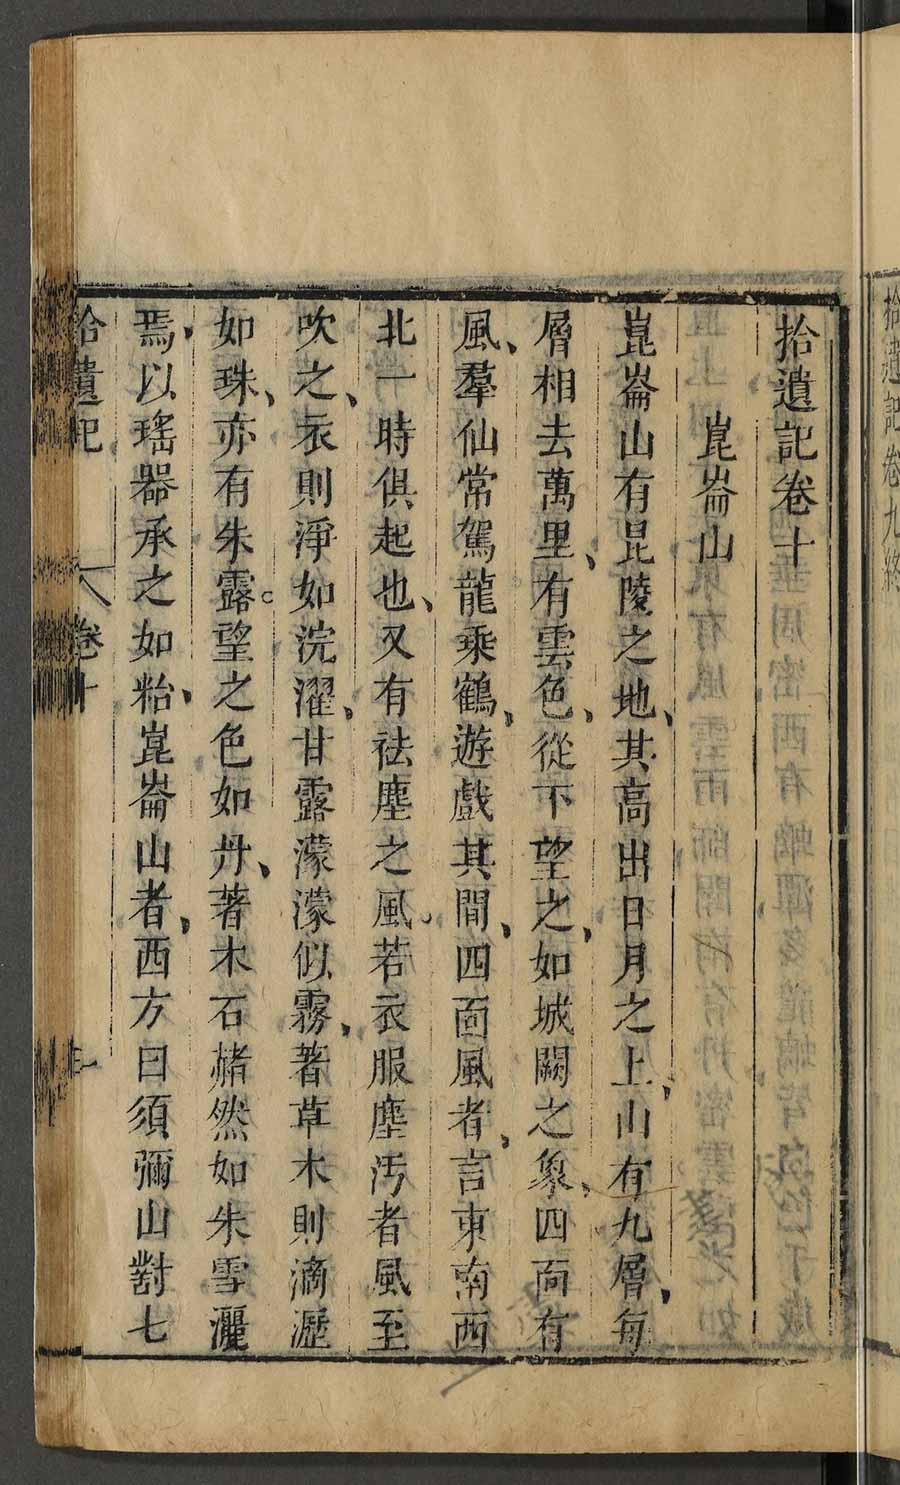 拾遺記卷九終
拾遺記卷十
崑崙山
崑崙山有昆陵之地、其高出日月之上、山有九層、每
層相去萬里、有雲色、從下望之、如城闕之象、四面有
風、羣仙常駕龍乘鶴、遊戲其間、四面風者、言東南西
北一時俱起也、又有祛塵之風。若衣服塵汚者風至
吹之、衣則淨如浣濯、甘露濛濛似霧、著草木則滴瀝
如珠、亦有朱露。望之色如丹、著木石赭然如朱雪灑
焉、以瑤器承之如粭、崑崙山者、西方曰須彌山對七
拾遺記 卷十 一